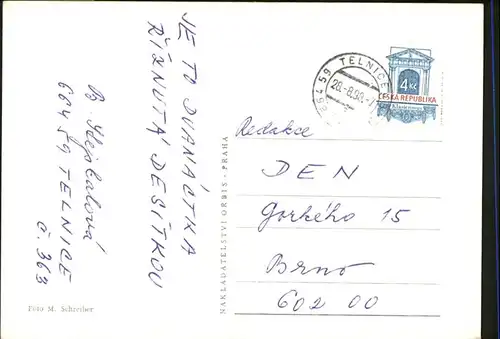 JE TO DVANÁCTKA
ŘÍZNUTÁ DESÍTKOU
664 59 TELNICE
č. 363
Foto M. Schreiber
NAKLADATELSTVÍ ORBIS - PRAHA
664 59 TELNICE
28.-8.98.-
4 Kč
ČESKÁ REPUBLIKA
Redakce
DEN
Gorkého 15
Brno
602 00